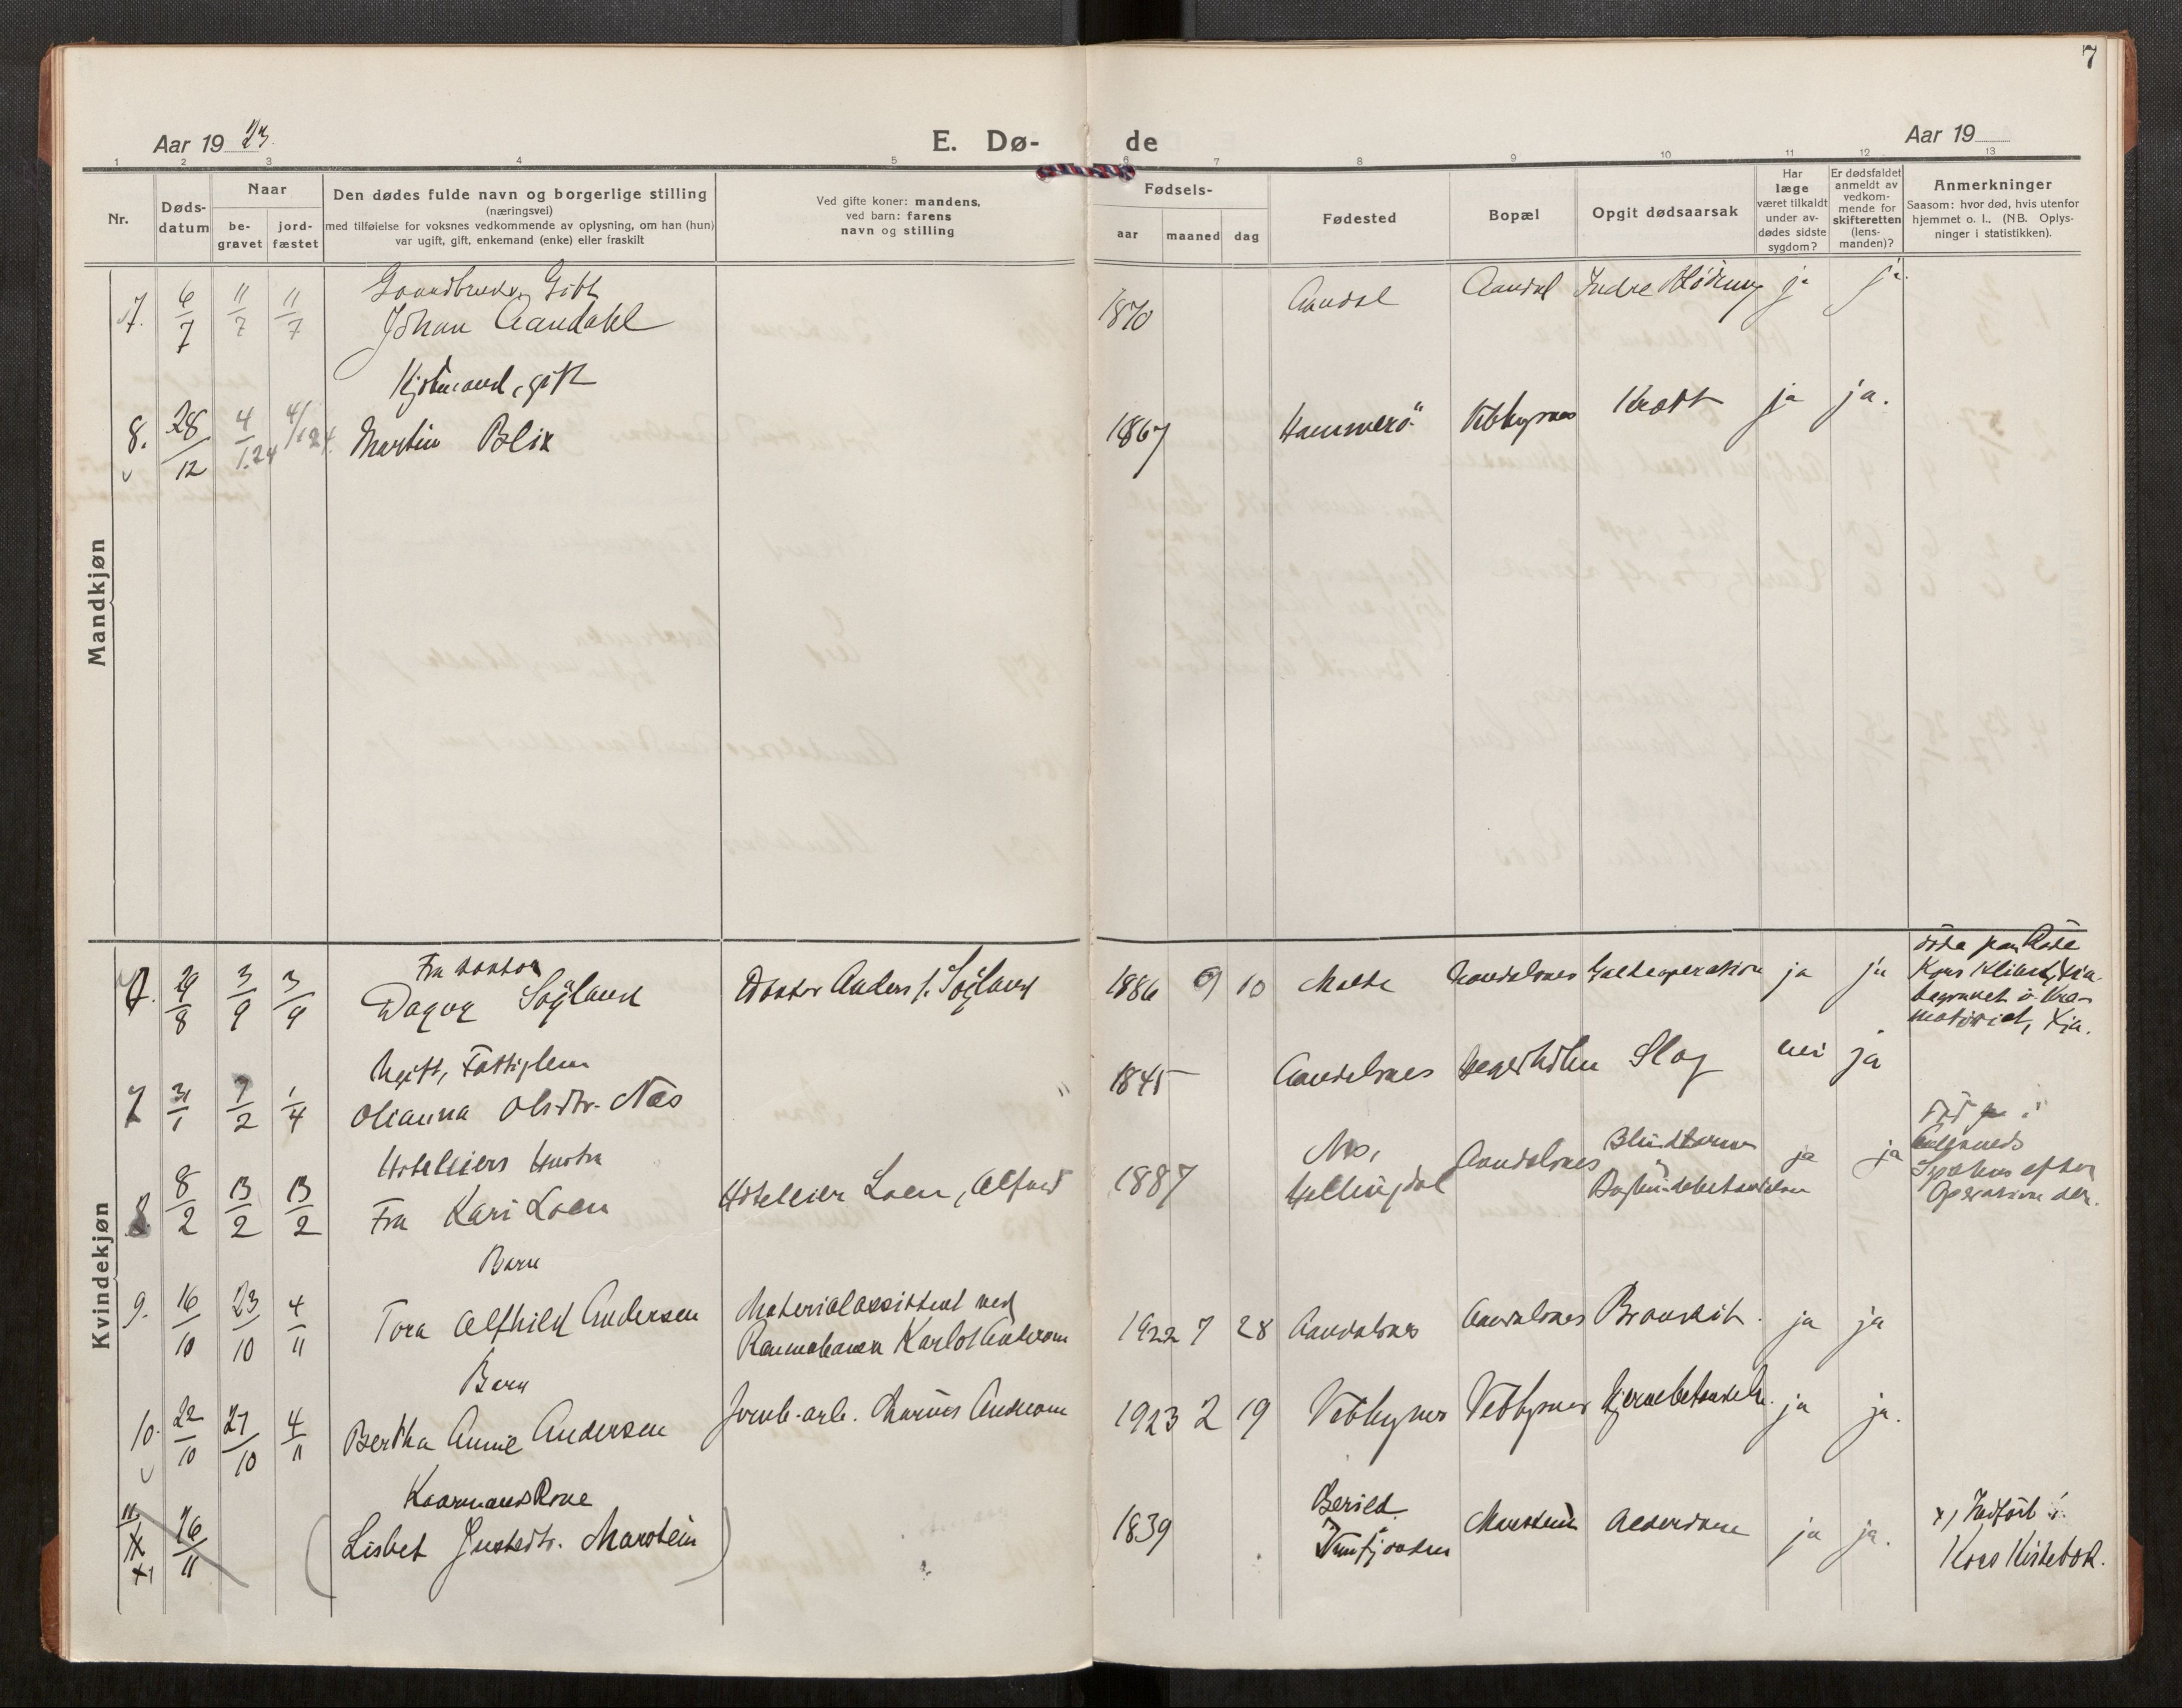 7
Aar 19 23.
E. Dø-
de
Aar 19
1 2 3 4 5 6 7 8 9 10 11 12 13
Nr.
Døds-
datum
Naar
be-
gravet
jord-
fæstet
Den dødes fulde navn og borgerlige stilling
(næringsvei)
med tilføielse for voksnes vedkommende av oplysning, om han (hun)
var ugift, gift, enkemand (enke) eller fraskilt
Ved gifte koner: mandens,
ved barn: farens
navn og stilling
Fødsels-
aar maaned dag
Fødested
Bopæl
Opgit dødsaarsak
Har
læge
været tilkaldt
under av-
dødes sidste
sygdom?
Er dødsfaldet
anmeldt av
vedkom-
mende for
skifteretten
(lens-
manden)?
Anmerkninger
Saasom: hvor død, hvis utenfor
hjemmet o. l., (NB. Oplys-
ninger i statistikken).
Mandkjøn
Gaardbruker, Gift
7. 6/7 11/7 11/7 Johan Aandahl 1870 Aandal Aandal Indre Blødning ja ja.
Kjøbmand, gift
8. 28/12 4/1.24 4/1.24. Martin Blix 1867 Hammerö Veblugsnes Kræft ja ja.
Kvindekjøn
Fru Doktor
7. 29/8 3/9 3/9 Dagny Söyland Doktor Anders Söyland 1886 9 10 Molde Aandalsnes Galdeoperation ja ja
døde paa Røde
Kors Klinik, Kr.a
begravet i Kre-
matoriet, Kra.
Ugift, Fattiglem
7 31/1 7/2 1/4 Olianna Olsdtr. Næs 1845 Aandalsnes Hegerholm Slag nei ja
Hoteleiers Hustru
8 8/2 13/2 13/2 Fru Kari Loen Hoteleier Loen, Alfred 1887 Nes,
Hallingdal Aandalsnes Blindtarms
Bughindebetændelse ja ja
Död i
Aalesunds
Sykehus efter
Operation der.
Barn
9. 16/10 23/10 4/11 Tora Alfhild Andersen Materialassistent ved
Raumabanen Karlot Andersen 1922 7 28 Aandalsnes Aandalsnes Bronkit. ja ja
Barn
10. 22/10 27/10 4/11 Bertha Annie Andersen Jernb.-arb. Marius Andersen 1923 2 19 Veblugsnes Veblugsnes Hjernebetændelse. ja ja.
Kaarmands Kone
11. x) 26/11 (Lisbet Jvarsdtr. Marstein) 1839 Marstein Alderdom ja ja.
x) Indført i
Kors Kirkebok.